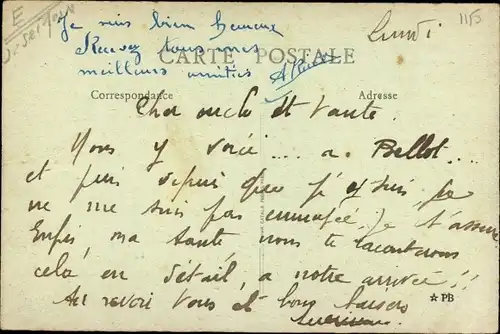 Je suis bien heureux
Recevez tous mes
meilleurs amitiés
Lundi
1115
E
CARTE POSTALE
Correspondance
Adresse
Cher oncle et tante.
Nous y voici .... a Bellot ...
et puis depuis que j'y suis, je
ne me suis pas ennuyée. Je t'assure
Enfin, ma tante nous te raconterons
cela en détail, a notre arrivée !!
Au revoir Vous et bons baisers
★PB